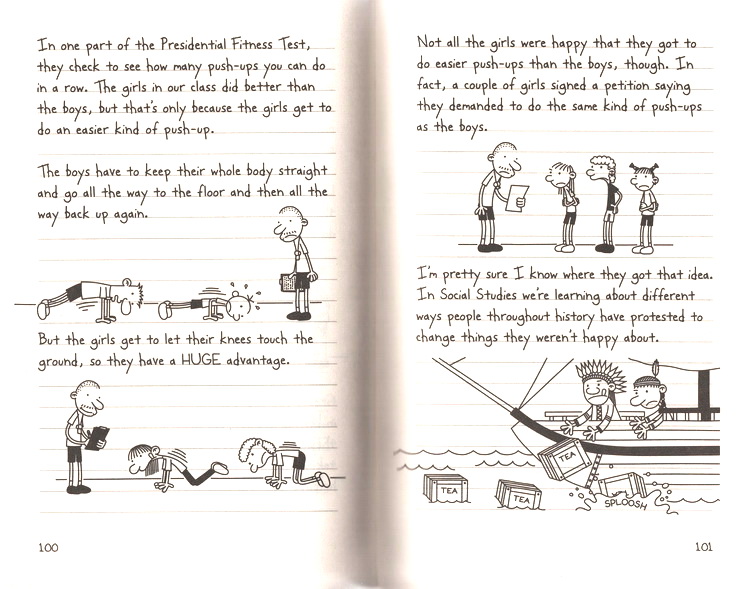 In one part of the Presidential Fitness Test,
they check to see how many push-ups you can do
in a row. The girls in our class did better than
the boys, but that's only because the girls get to
do an easier kind of push-up.
The boys have to keep their whole body straight
and go all the way to the floor and then all the
way back up again.
But the girls get to let their knees touch the
ground, so they have a HUGE advantage.
100
Not all the girls were happy that they got to
do easier push-ups than the boys, though. In
fact, a couple of girls signed a petition saying
they demanded to do the same kind of push-ups
as the boys.
I'm pretty sure I know where they got that idea.
In Social Studies we're learning about different
ways people throughout history have protested to
change things they weren't happy about.
TEA
TEA
TEA
SPLOOSH
101